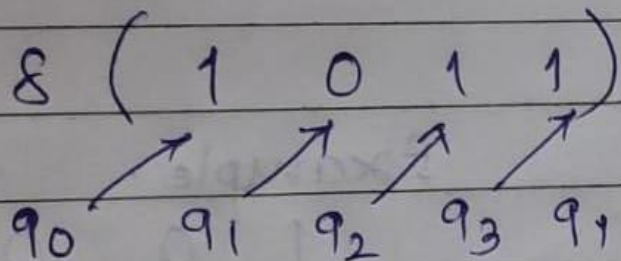 8 ( 1 0 1 1 )
q0 q1 q2 q3 q4